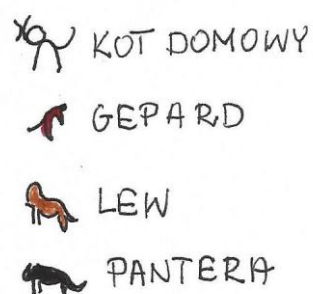 KOT DOMOWY
GEPARD
LEW
PANTERA